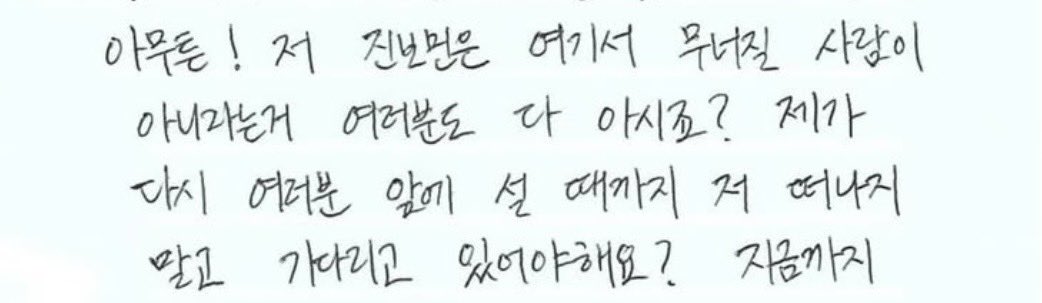 아무튼! 저 진보민은 여기서 무너질 사람이
아니라는거 여러분도 다 아시죠? 제가
다시 여러분 앞에 설 때까지 저 떠나지
말고 기다리고 있어야해요? 지금까지